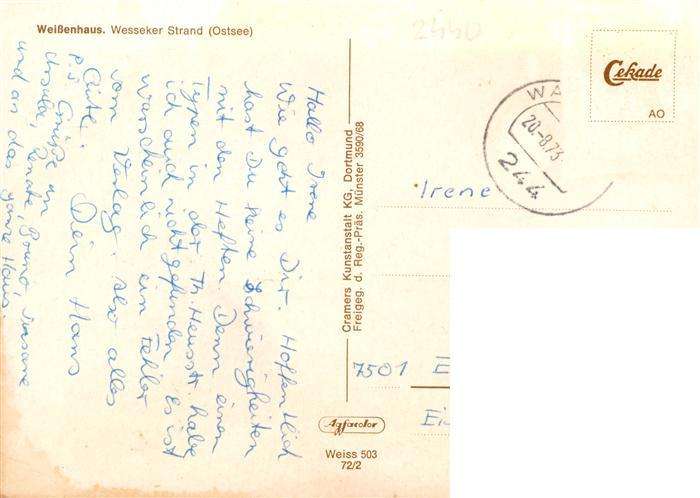 Weißenhaus. Wesseker Strand (Ostsee)
Hallo Irene
Wie geht es Dir. Hoffentlich
hast Du keine Schwierigkeiten
mit den Heften. Denn einen
Typen in der Th. Heusstr. habe
ich auch nicht gefunden. Es ist
warscheinlich ein Fehler
vom Verlag. Also alles
Gute. Dein Hans
P.S. Grüße an
Ursula, Renate, Bruno, Susane
und an das ganze Haus.
Cramers Kunstanstalt KG, Dortmund
Freigeg. d. Reg.-Präs. Münster 3590/68
Agfacolor
Weiss 503
72/2
2440
Cekade
AO
WA
20.-8.73
244
Irene
7501 E
Ei